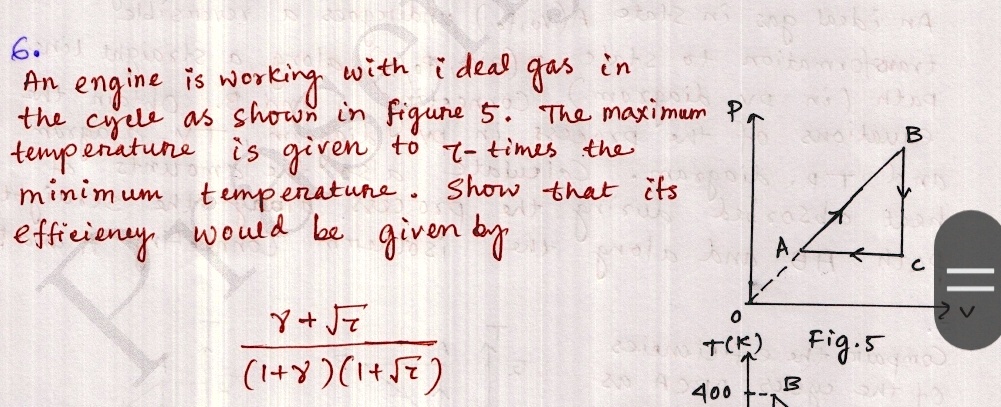 6.
An engine is working with ideal gas in
the cycle as shown in figure 5. The maximum
temperature is given to τ-times the
minimum temperature. Show that its
efficiency would be given by
γ + √τ
(1+γ)(1+√τ)
P
B
A
C
O
V
Fig.5
T(K)
400
B